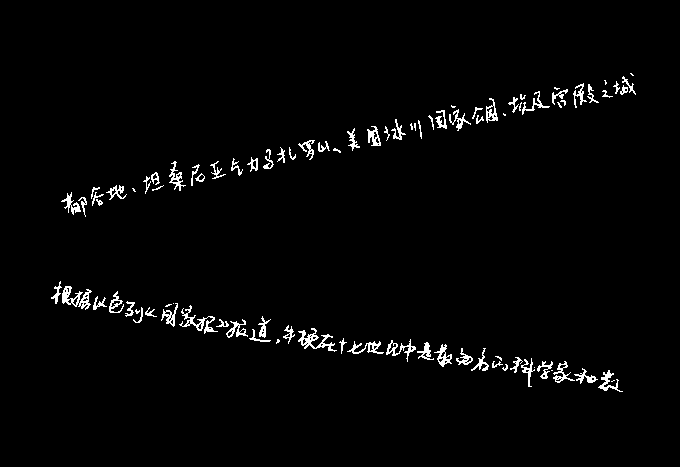 都谷地、坦桑尼亚乞力马扎罗山、美国冰川国家公园、埃及宫殿之城
根据以色列《国家报》报道,牛顿在十七世纪中是最为有名的科学家和数